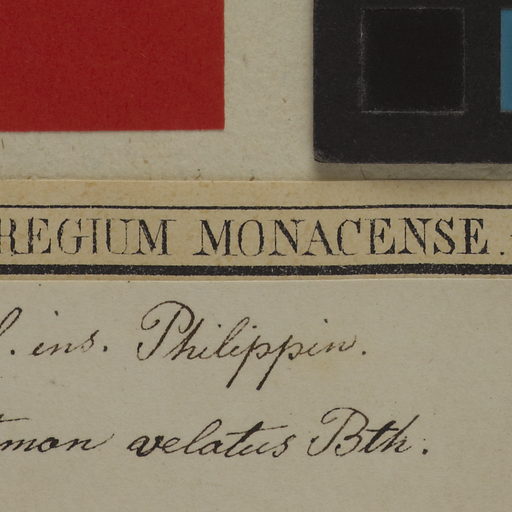 REGIUM MONACENSE.
. ins. Philippin.
mon velatus Bth.